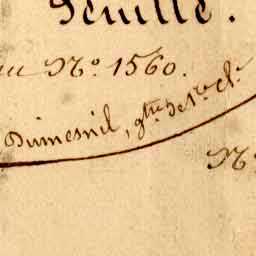 Feuille.
au N.º 1560.
Dumesnil, g.tre de 1.re cl.e
N.º